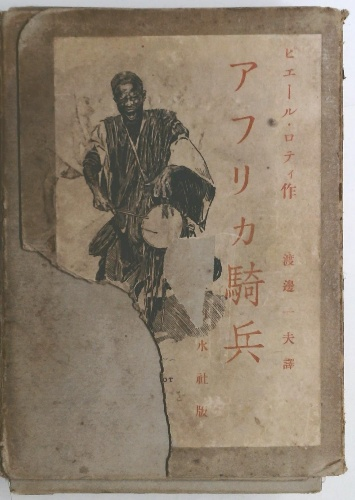 ピエール・ロティ作
アフリカ騎兵
渡邊一夫譯
水社版
OT